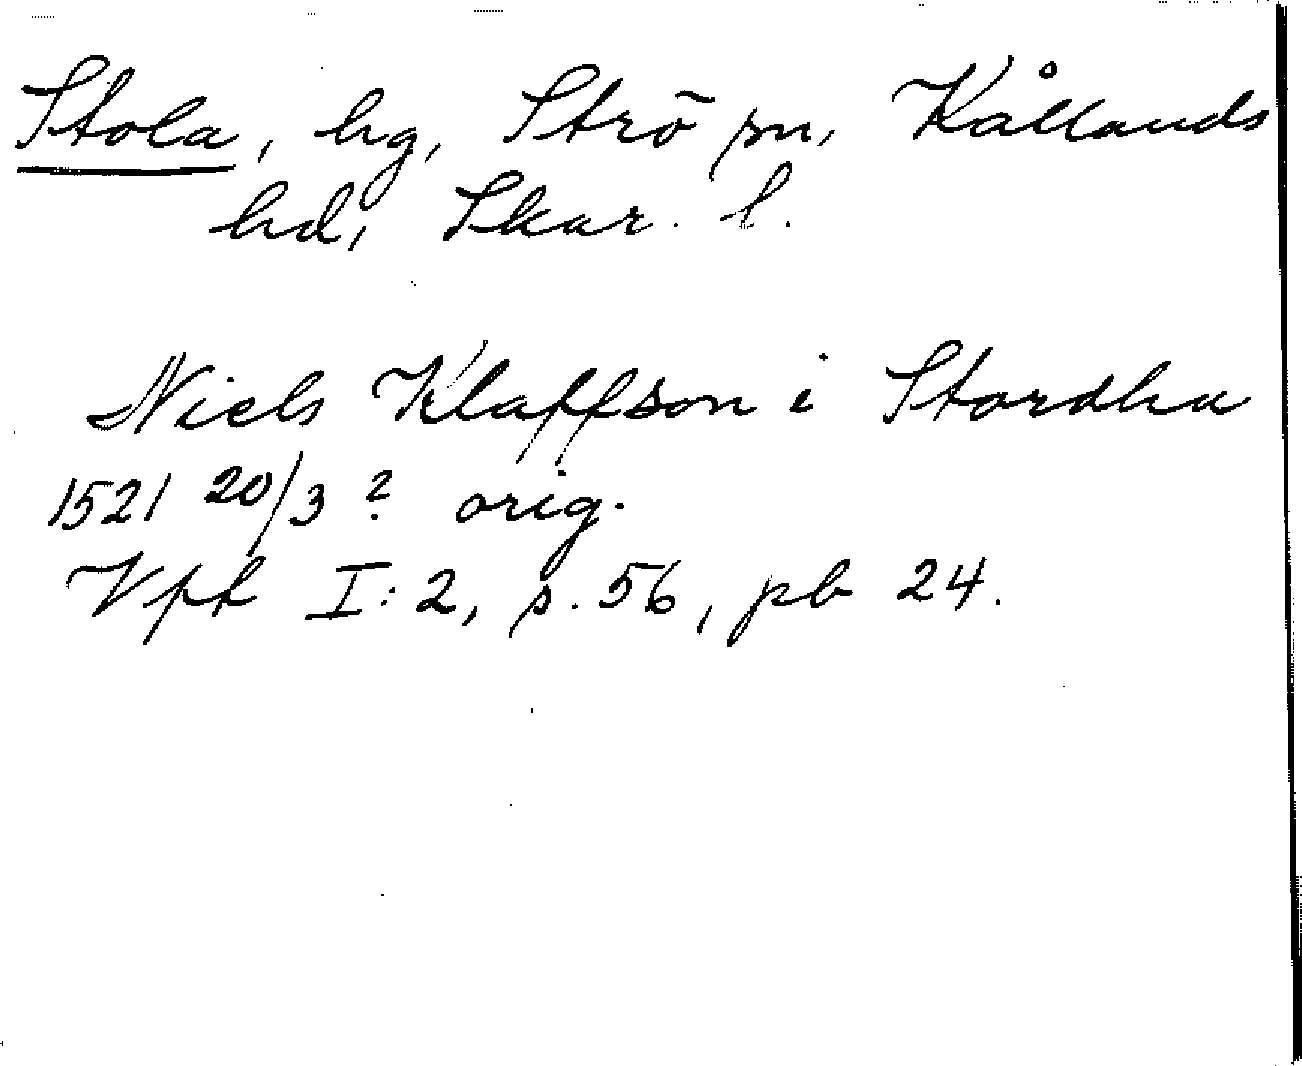 Stola, hg, Strö sn, Kållands
hd, Skar. l.
Niels Klaffson i Stordha
1521 20/3 ? orig.
Vpf I:2, s. 56, pb 24.